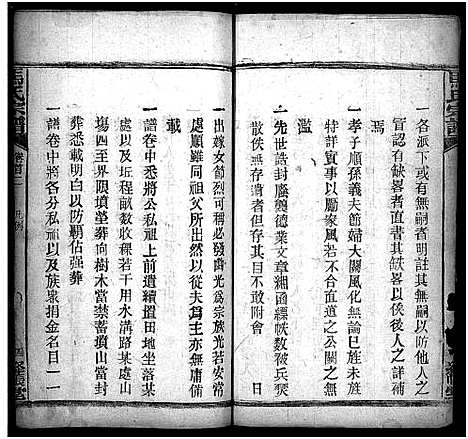 一各派下或有無嗣者明註其無嗣以防他人之
冒認有缺畧者直書其缺畧以俟後人之詳補
焉
一孝子順孫義夫節婦大關風化無論已旌未旌
特詳實事以勵家風若不合直道之公闕之無
濫
一先世誥封賡颺德業文章緗函縹帙數被兵燹
散佚無存僅者但存其目不敢附會
一出嫁女節烈可稱必發曹光為宗族光若安常
處順雖同祖父所出然以從夫為主亦無庸備
載
一譜卷中悉將公私祖上前遺續置田地坐落某
處以及坵程畝數收租若干用水溝路某處山
塲四至界限墳塋葬向樹木當禁蓄墳山當封
葬悉載明白以防覇佔強葬
一譜卷中將各分私祖以及族衆捐金名目一一
馬氏宗譜
卷首
凡例
四